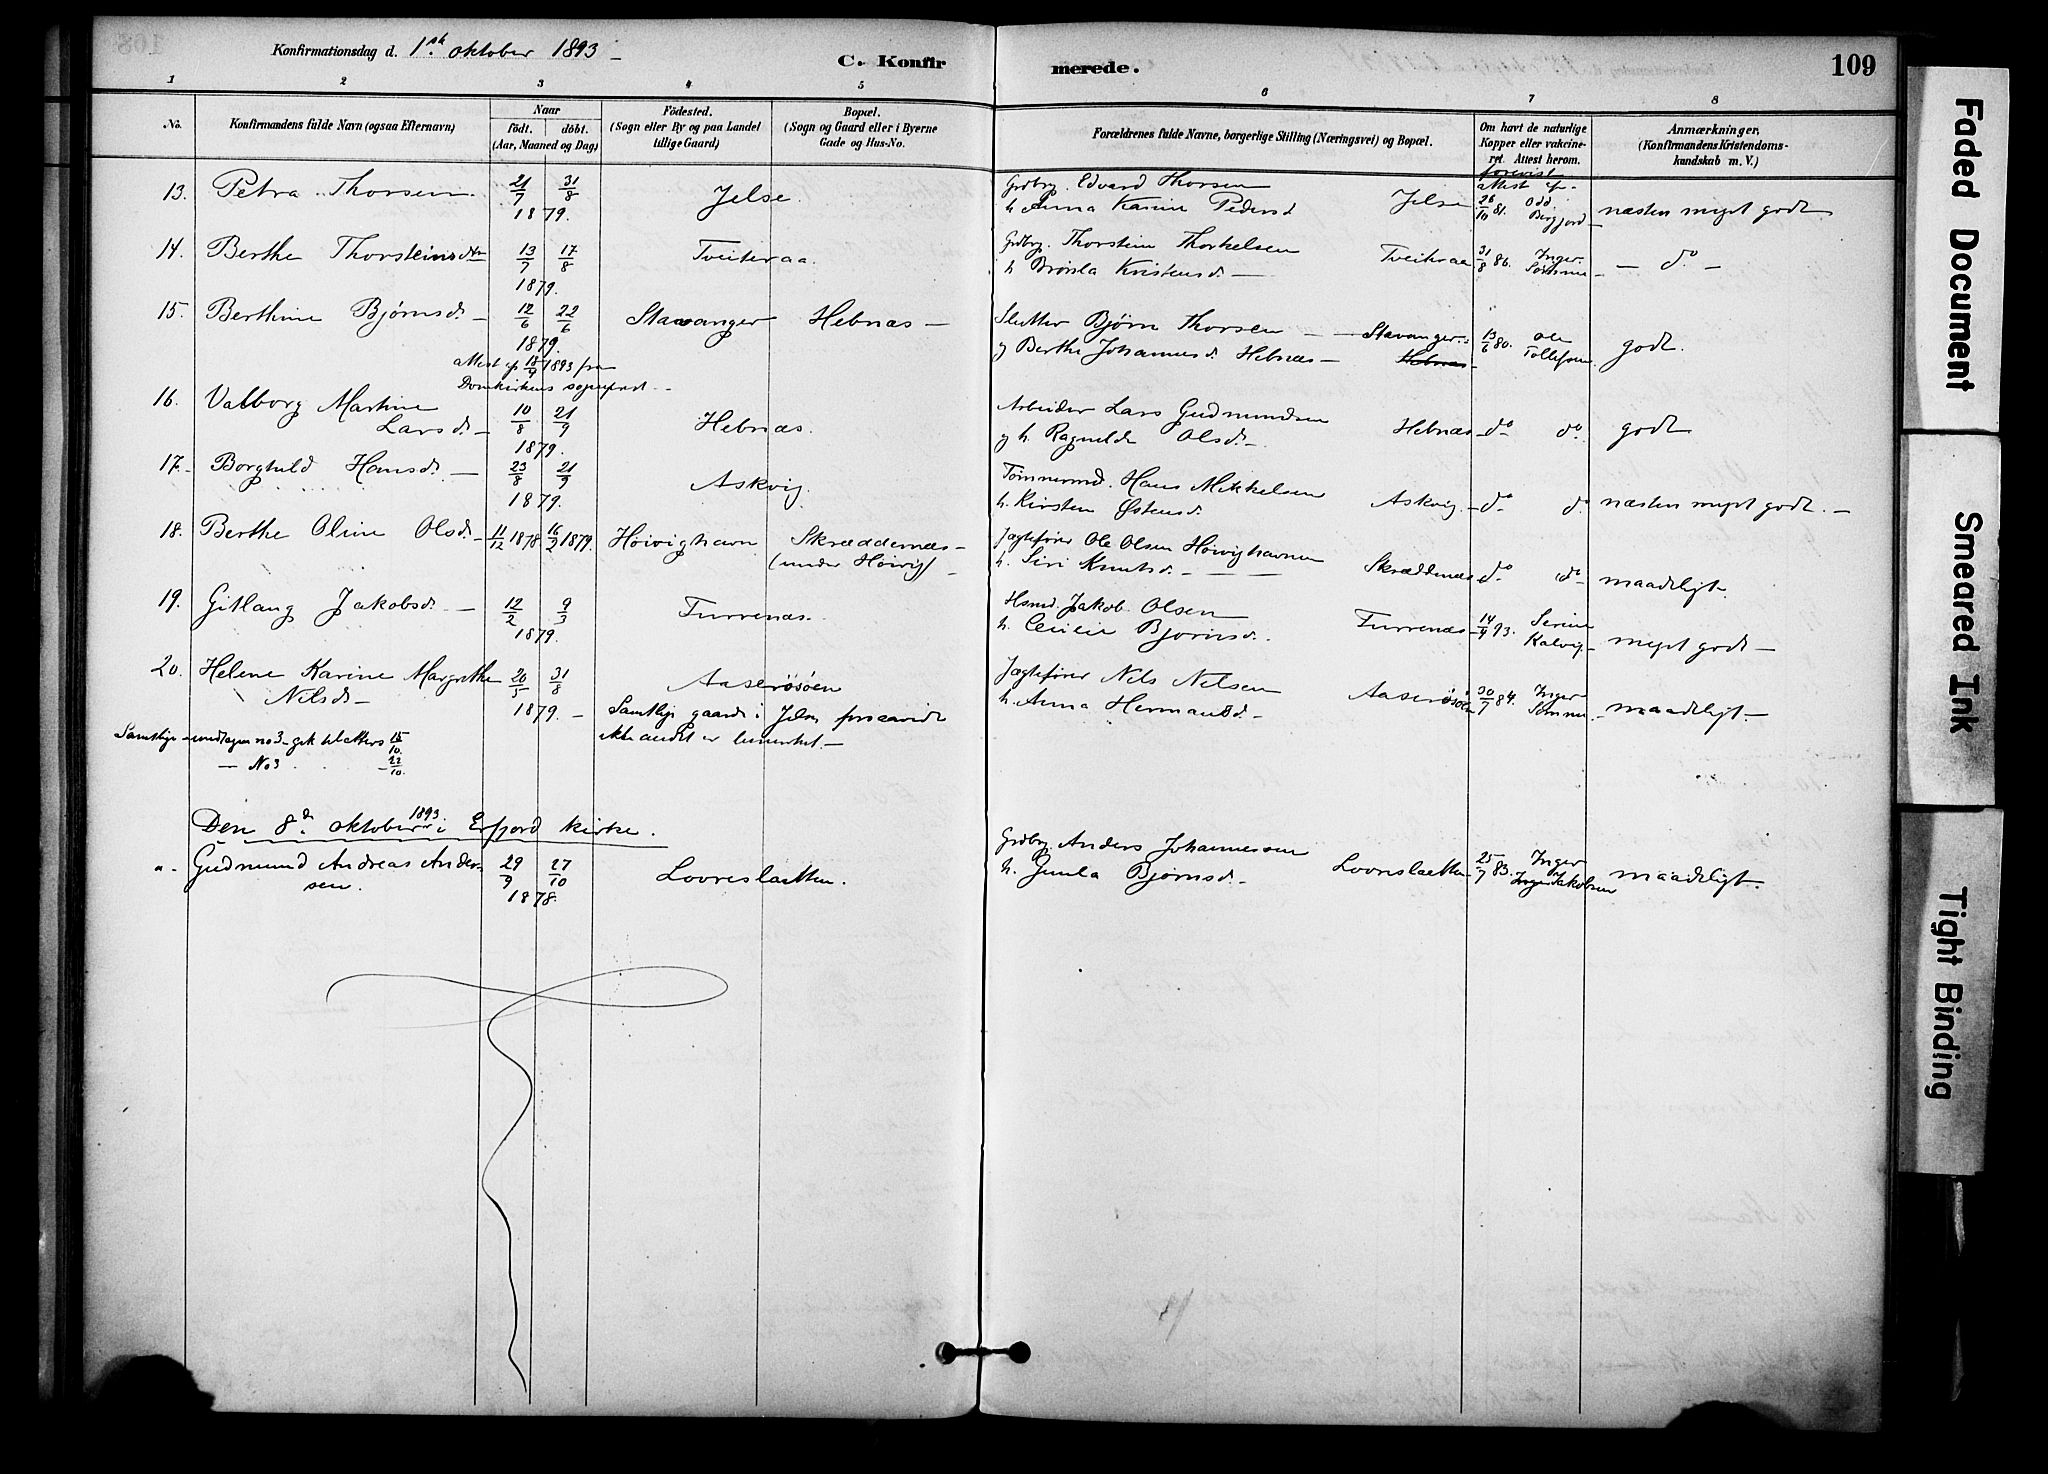 Konfirmationsdag d. 1ste oktober 1893
C. Konfirmerede.
109
1 2 3 4 5 6 7 8
No.
Konfirmandens fulde Navn (ogsaa Efternavn)
Naar
födt. döbt.
(Aar, Maaned og Dag)
Födested.
(Sogn eller By og paa Landet
tillige Gaard)
Bopæl.
(Sogn og Gaard eller i Byerne
Gade og Hus-No.
Forældrenes fulde Navne, borgerlige Stilling (Næringsvei) og Bopæl.
Om havt de naturlige
Kopper eller vakcine-
ret. Attest herom.
Anmærkninger,
(Konfirmandens Kristendoms-
kundskab m. V.)
forevist
attest af
13. Petra Thorsen 21/7 31/8 1879. Jelse.
Grdbrg. Edvard Thorsen
h. Anna Karine Pedersd. Jelse 26/10 81. Odd Bergfjord næsten meget godt
14. Berthe Thorsteinsdtr 13/7 17/8 1879. Tveiteraa.
Grdbrg. Thorstein Thorkelsen
h. Kristensd. Tveiteraa 31/8 86. Inger - do -
15. Berthine Bjørnsd. 12/6 22/6 1879. Stavanger Hebnæs
attest af 18/9 1893 fra
Domkirkens sogneprest
Bjørn Thorsen Stavanger
og Berthe Johannesd. Hebnæs Hebnæs 13/6 80. Ole Tollefsen. godt.
16. Valborg Martine
Larsd. 10/8 21/9 1879. Hebnæs.
Arbeider Lars Gudmundsen
og h. Ragnilde Olsd. Hebnæs do do. godt
17. Borghild Hansd. 23/8 21/9 1879. Askvig.
Tømmermd. Hans Mikkelsen
h. Kirsten Østensd. Askvig. do do næsten meget godt.
18. Berthe Oline Olsd. 11/12 1878 16/2 1879. Høivighavn Skræddernæs
(under Høivig)
Jægtefører Ole Olsen Høivighavnen
h. Siri Knutsd. Skræddnæs do do maadeligt
19. Gitlaug Jakobsd. 12/2 9/3 1879. Furrenæs.
Hsmd. Jakob Olsen
h. Bjørnsd. Furrenæs 14/9 93. Serine Kalvig meget godt
20. Helene Karine Margrethe
Nilsd. 20/5 31/8 1879. Aaserøsøen
Jægtefører Nils Nilsen
h. Anna Hermansd. Aaserøsøen 30/7 84. Inger maadeligt.
Samtlige gaarde i Jelse forsaavidt
ikke andet er bemerket.
Samtlige undtagen no 3 gik til alters 15/10.
No 3 22/10.
Den 8de oktober 1893 i Erfjord kirke.
Gudmund Andreas Ander-
sen. 29/9 27/10 1878. Lovreslætten.
Grdbrg. Anders Johannessen
h. Gunla Bjørnsd. Lovreslætten 25/7 83. Inger Jakobsen maadeligt.
Faded Document
Smeared Ink
Tight Binding